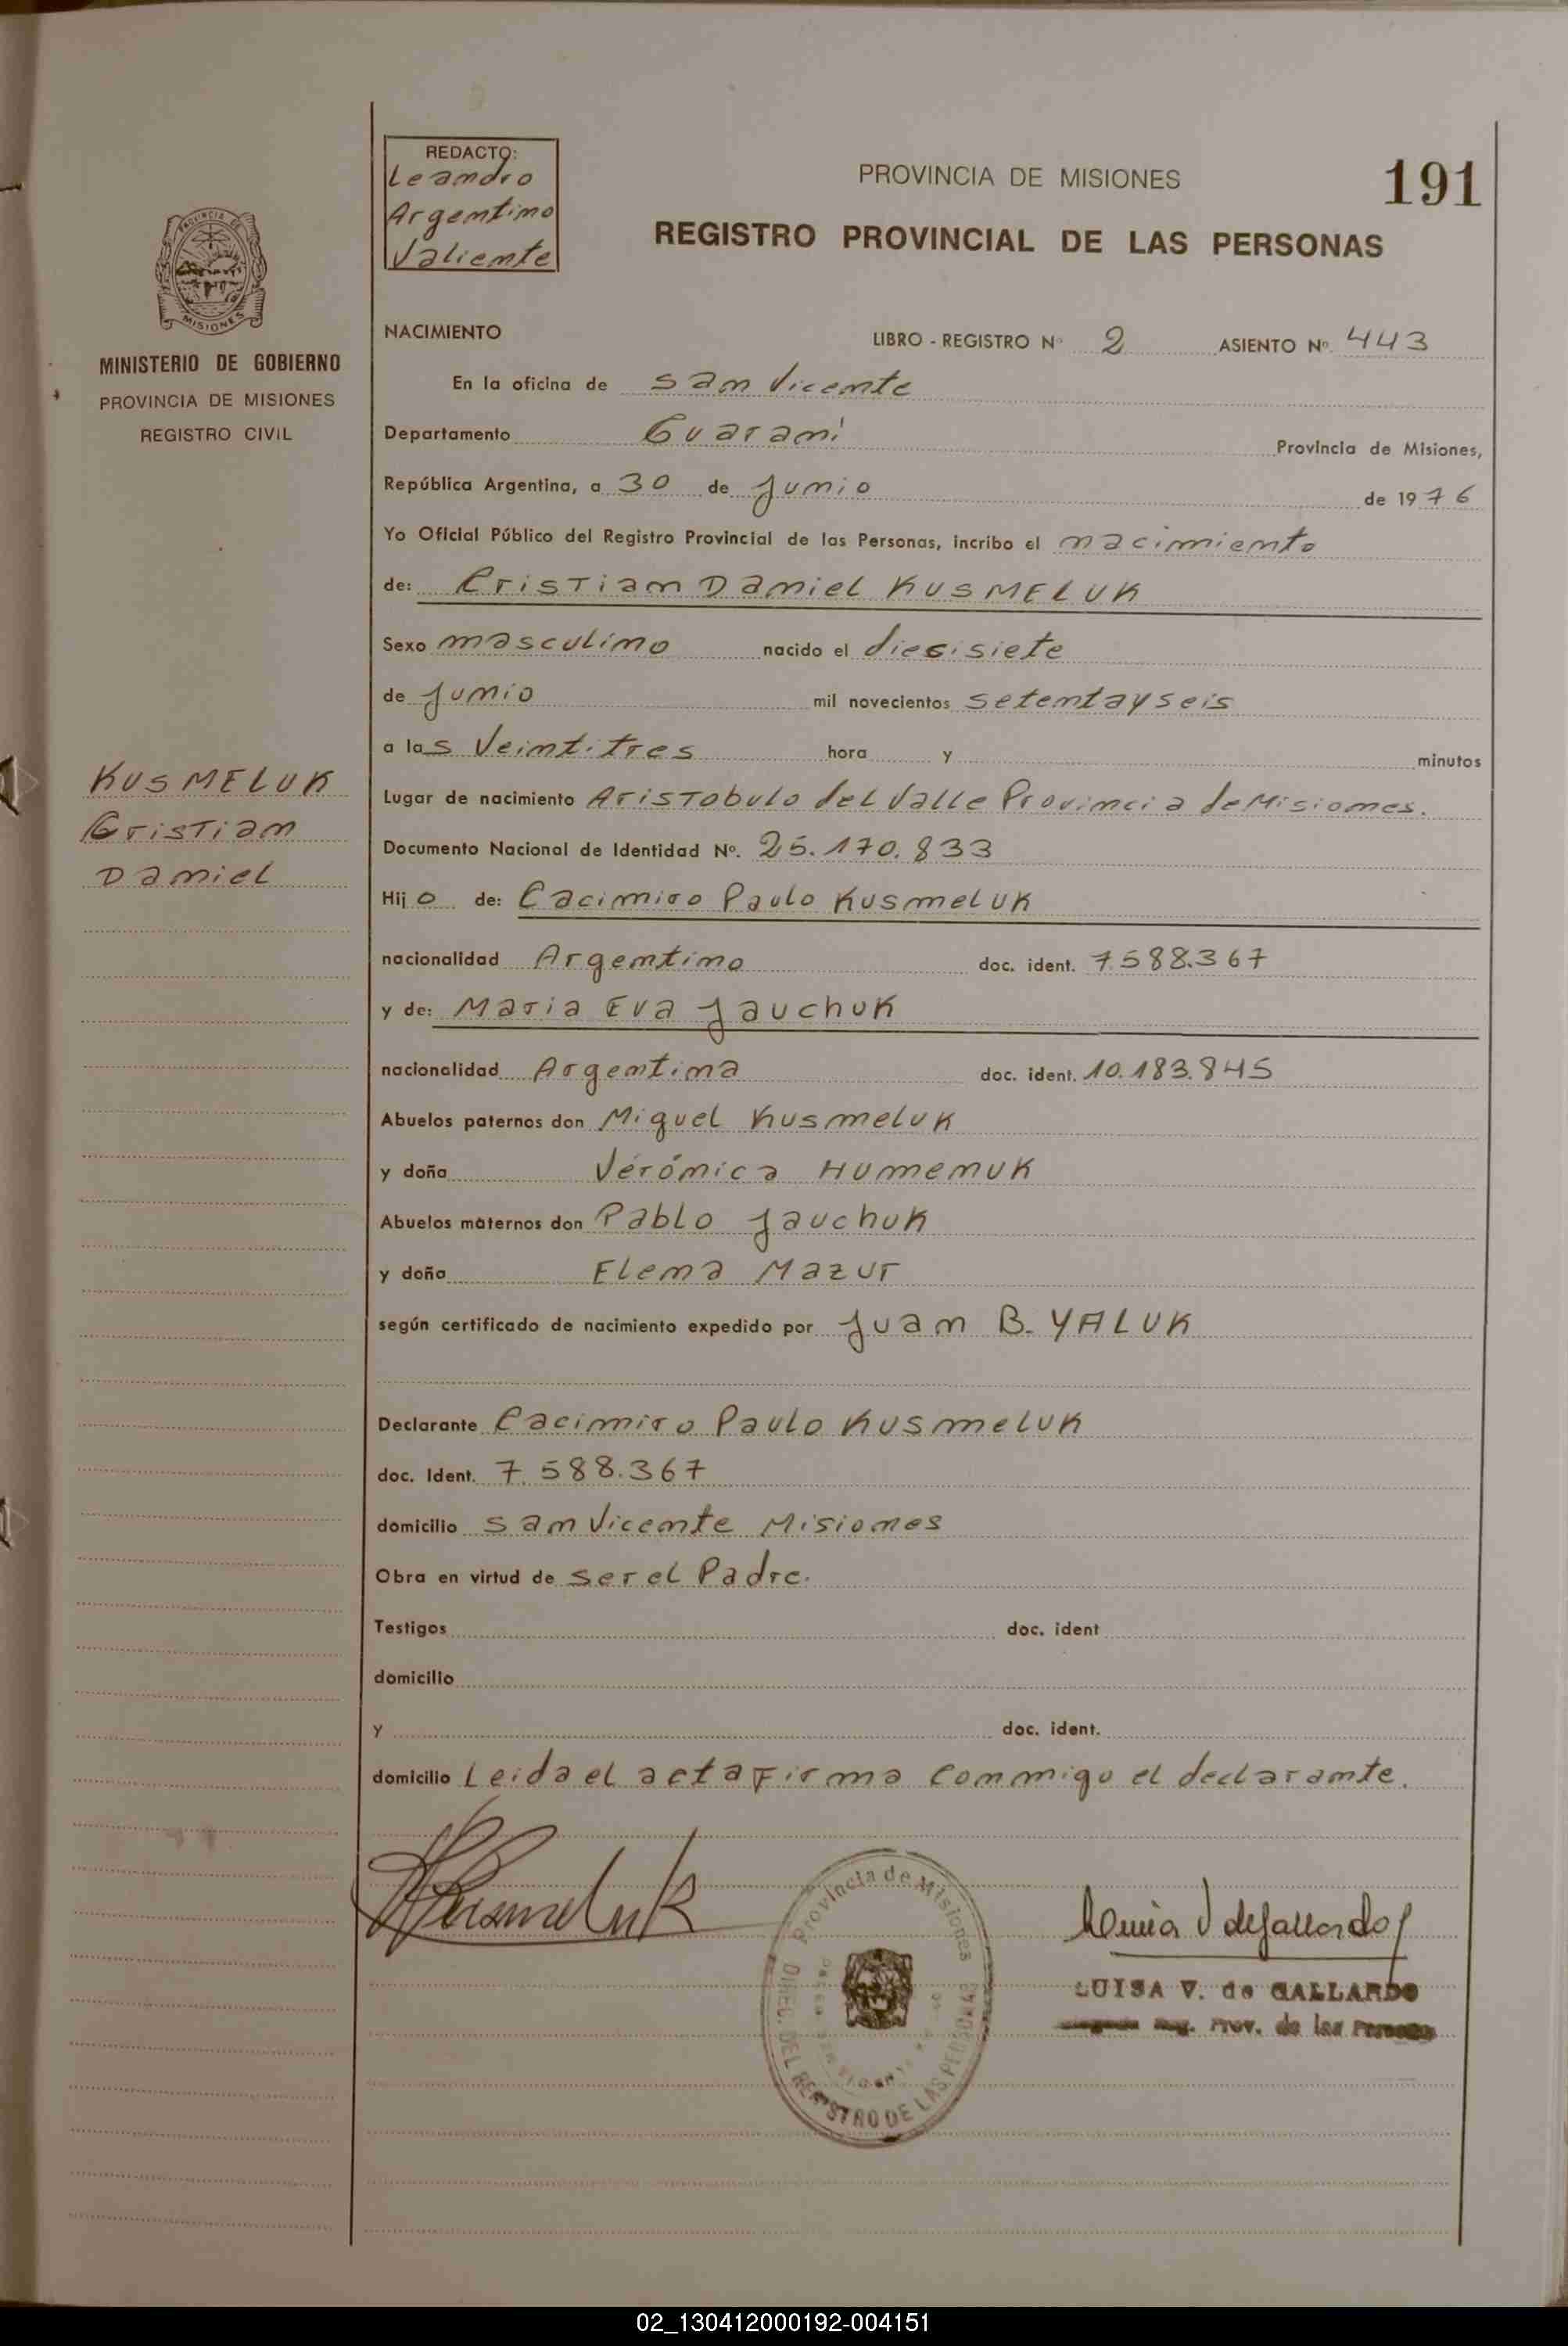 REDACTO:
Leandro
Argentino
Valiente
PROVINCIA DE MISIONES
191
REGISTRO PROVINCIAL DE LAS PERSONAS
PROVINCIA DE
MISIONES
MINISTERIO DE GOBIERNO
PROVINCIA DE MISIONES
REGISTRO CIVIL
KUSMELUK
Cristian
Daniel
NACIMIENTO LIBRO - REGISTRO Nº 2 ASIENTO Nº 443
En la oficina de San Vicente
Departamento Guaraní Provincia de Misiones,
República Argentina, a 30 de Junio de 1976
Yo Oficial Público del Registro Provincial de las Personas, incribo el nacimiento
de: Cristian Daniel KUSMELUK
Sexo masculino nacido el diecisiete
de Junio mil novecientos setentayseis
a las Veintitres hora y minutos
Lugar de nacimiento Aristobulo del Valle Provincia de Misiones.
Documento Nacional de Identidad Nº. 25.170.833
Hijo de: Cacimiro Paulo Kusmeluk
nacionalidad Argentino doc. ident. 7.588.367
y de: Maria Eva Jauchuk
nacionalidad Argentina doc. ident. 10.183.845
Abuelos paternos don Miguel Kusmeluk
y doña Verónica Humenuk
Abuelos maternos don Pablo Jauchuk
y doña Elena Mazur
según certificado de nacimiento expedido por Juan B. YALUK
Declarante Cacimiro Paulo Kusmeluk
doc. Ident. 7.588.367
domicilio San Vicente Misiones
Obra en virtud de ser el Padre.
Testigos doc. ident
domicilio
y doc. ident.
domicilio Leida el acta Firma conmigo el declarante.
Kusmeluk
Provincia de Misiones
DIREC. DEL REGISTRO DE LAS PERSONAS
Luisa V de Gallardo
LUISA V. de GALLARDO
Reg. Prov. de las Personas
02_130412000192-004151